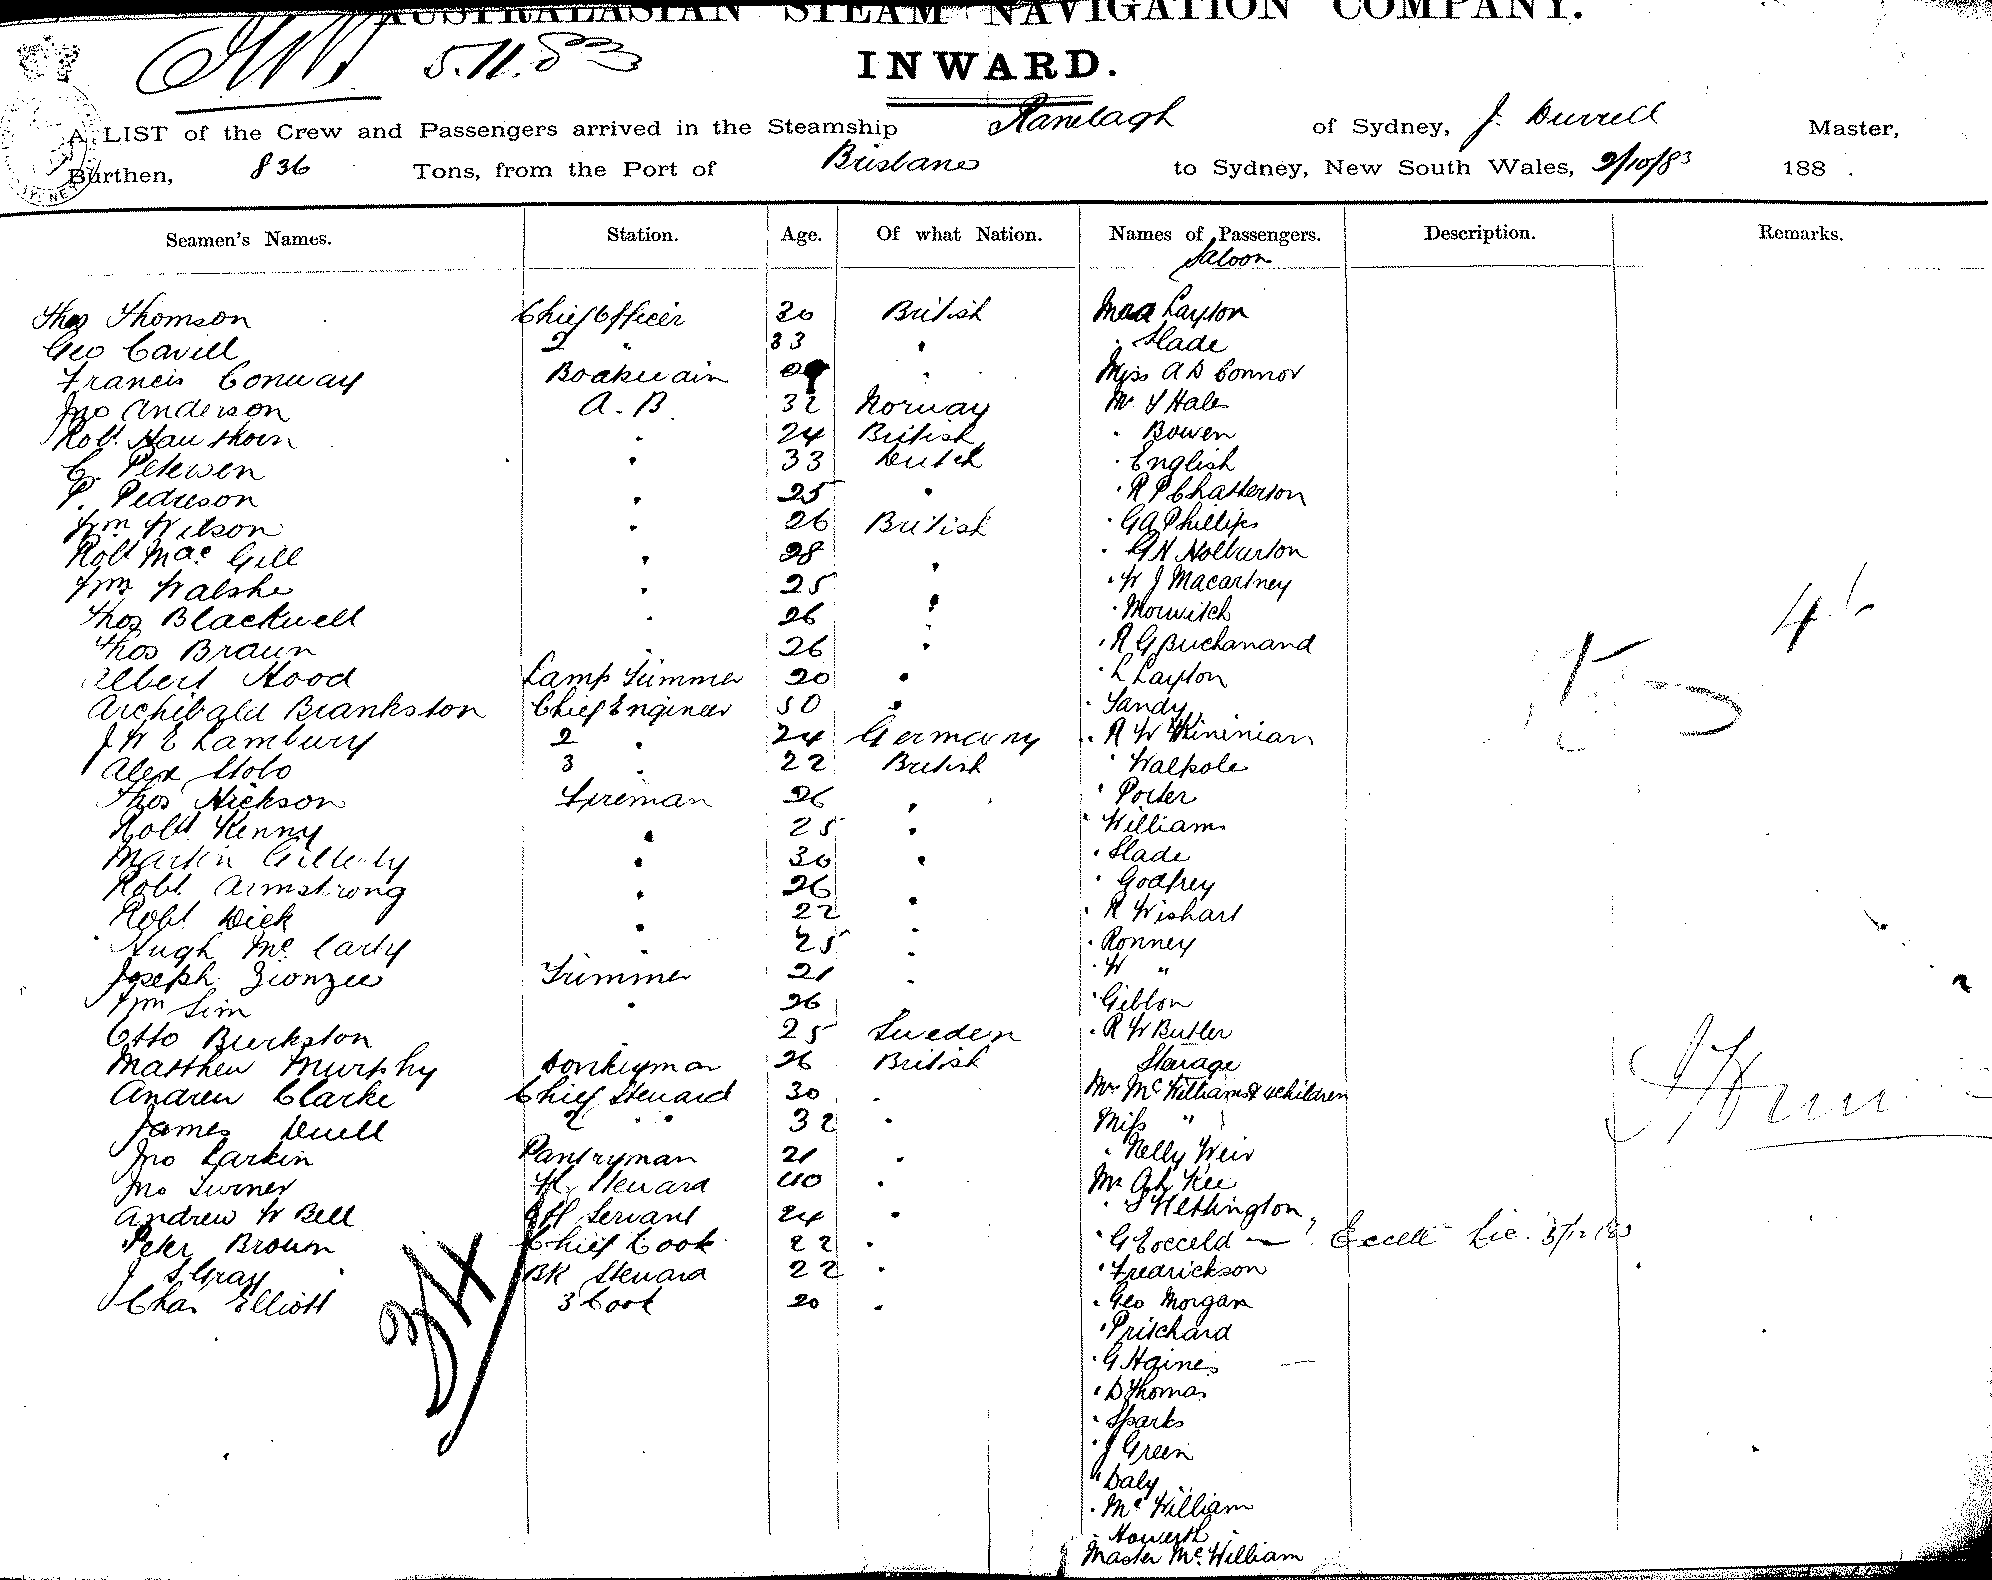 AUSTRALASIAN STEAM NAVIGATION COMPANY.
5.11.83
INWARD.
A LIST of the Crew and Passengers arrived in the Steamship Ranelagh of Sydney, J. Durrell Master,
Burthen, 836 Tons, from the Port of Brisbane to Sydney, New South Wales, 2/10/83 188 .
Seamen's Names. Station. Age. Of what Nation. Names of Passengers. Description. Remarks.
Saloon
Thos Thomson Chief Officer 30 British Layton
Geo Cavill 2 " 33 " " Slade
Francis Conway " Miss A D Connor
Jno Anderson A.B. 32 Norway Mr Hales
Robt Hawthorn " 24 British " Bowen
C. Petersen " 33 Dutch " English
P. Pedreson " 25 " " R P Chatterton
Wm Wilson " 26 British " G A Phillips
Robt MacGill " 28 " " G H Holburton
Wm Walshe " 25 " " W J Macartney
Thos Blackwell " 26 " " Morwitch
Thos Braun " 26 " " R G Buchanand
Albert Hood Lamp Trimmer 20 " " L Layton
Archibald Brankston Chief Engineer 50 " " Sandy
J W E Lambury 2 " 24 Germany " R W
Alex Stobo 3 " 22 British " Walpole
Thos Hickson Fireman 26 " " Porter
Robt Kenny " 25 " " Williams
Martin " 30 " " Slade
Robt Armstrong " 26 " " Godfrey
Robt Dick " 22 " " R Wishart
Hugh McCarty " 25 " " Ronney
Joseph Trimmer 21 " " W "
Wm Sim " 26 " Gibbon
Otto Burkston " 25 Sweden " R W Butler
Matthew Murphy Donkeyman 26 British Sterage
Andrew Clarke Chief Steward 30 " Mrs McWilliams & 4 children
James 2 " " 32 " Miss "
Jno Larkin Pantryman 21 " " Nelly Weir
Jno Turner Steward 40 " Mr Ah Kee
Andrew W Bell Servant 24 " " S Hethington
Peter Brown Chief Cook 22 " " G
J S Gray BK Steward 22 " " Fredrickson
Chas Elliott 3 Cook 20 " " Geo Morgan
34
" Pritchard
" G Haines
" D Thomas
" Sparks
" J Green
" Daly
" McWilliam
" Howerth
Master McWilliam